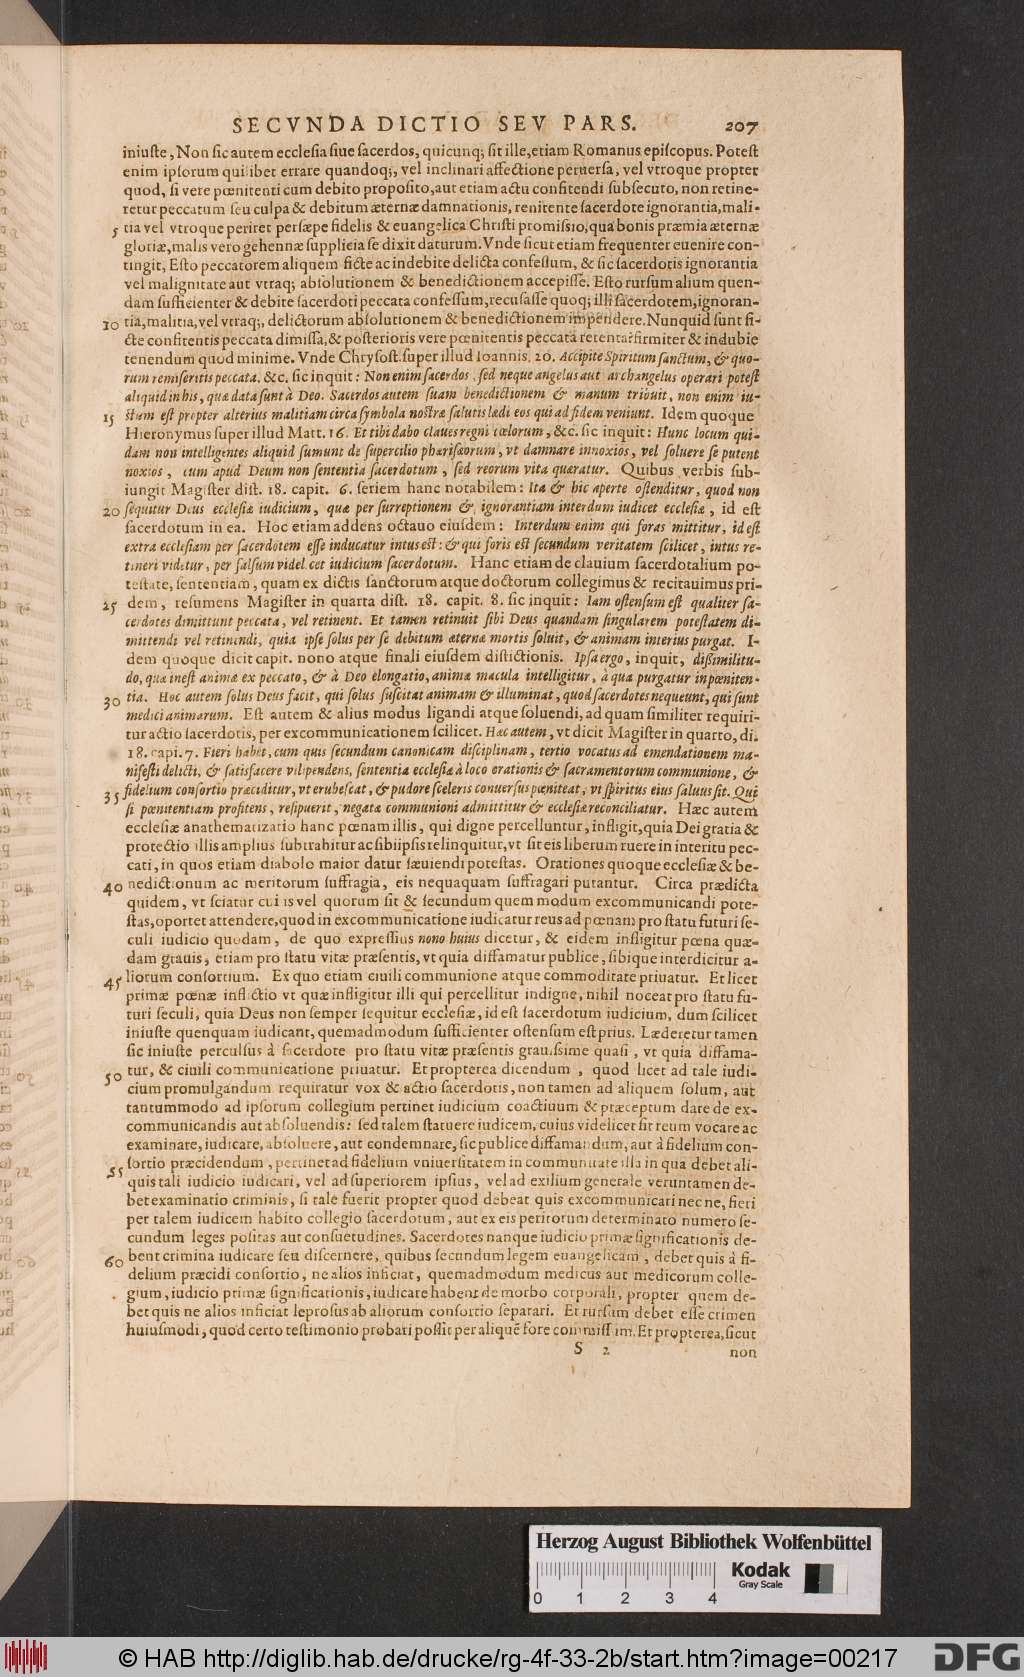 SECVNDA DICTIO SEV PARS. 207
iniuste, Non sic autem ecclesia siue sacerdos, quicunq; sit ille, etiam Romanus episcopus. Potest
enim ipsorum quilibet errare quandoq;, vel inclinari affectione peruersa, vel vtroque propter
quod, si vere pœnitenti cum debito proposito, aut etiam actu confitendi subsecuto, non retine-
retur peccatum seu culpa & debitum æternæ damnationis, renitente sacerdote ignorantia, mali-
5 tia vel vtroque periret persæpe fidelis & euangelica Christi promissio, qua bonis præmia æternæ
gloriæ, malis vero gehennæ supplicia se dixit daturum. Vnde sicut etiam frequenter euenire con-
tingit, Esto peccatorem aliquem ficte ac indebite delicta confessum, & sic sacerdotis ignorantia
vel malignitate aut vtraq; absolutionem & benedictionem accepisse. Esto rursum alium quen-
dam sufficienter & debite sacerdoti peccata confessum, recusasse quoq; illi sacerdotem, ignoran-
10 tia, malitia, vel vtraq;, delictorum absolutionem & benedictionem impendere. Nunquid sunt fi-
cte confitentis peccata dimissa, & posterioris vere pœnitentis peccata retenta? firmiter & indubie
tenendum quod minime. Vnde Chrysost. super illud Ioannis. 20. Accipite Spiritum sanctum, & quo-
rum remiseritis peccata. &c. sic inquit: Non enim sacerdos, sed neque angelus aut archangelus operari potest
aliquid in his, quæ data sunt à Deo. Sacerdos autem suam benedictionem & manum tribuit, non enim iu-
15 stum est propter alterius malitiam circa symbola nostræ salutis lædi eos qui ad fidem veniunt. Idem quoque
Hieronymus super illud Matt. 16. Et tibi dabo claues regni cœlorum, &c. sic inquit: Hunc locum qui-
dam non intelligentes aliquid sumunt de supercilio pharisæorum, vt damnare innoxios, vel soluere se putent
noxios, cum apud Deum non sententia sacerdotum, sed reorum vita quæratur. Quibus verbis sub-
iungit Magister dist. 18. capit. 6. seriem hanc notabilem: Ita & hic aperte ostenditur, quod non
20 sequitur Deus ecclesiæ iudicium, quæ per surreptionem & ignorantiam interdum iudicet ecclesiæ, id est
sacerdotum in ea. Hoc etiam addens octauo eiusdem: Interdum enim qui foras mittitur, id est
extra ecclesiam per sacerdotem esse inducatur intus est: & qui foris est secundum veritatem scilicet, intus re-
tineri videtur, per falsum videlicet iudicium sacerdotum. Hanc etiam de clauium sacerdotalium po-
testate, sententiam, quam ex dictis sanctorum atque doctorum collegimus & recitauimus pri-
25 dem, resumens Magister in quarta dist. 18. capit. 8. sic inquit: Iam ostensum est qualiter sa-
cerdotes dimittunt peccata, vel retinent. Et tamen retinuit sibi Deus quandam singularem potestatem di-
mittendi vel retinendi, quia ipse solus per se debitum æternæ mortis soluit, & animam interius purgat. I-
dem quoque dicit capit. nono atque finali eiusdem distictionis. Ipsa ergo, inquit, dissimilitu-
do, quæ inest animæ ex peccato, & à Deo elongatio, animæ macula intelligitur, à qua purgatur in pœniten-
30 tia. Hoc autem solus Deus facit, qui solus suscitat animam & illuminat, quod sacerdotes nequeunt, qui sunt
medici animarum. Est autem & alius modus ligandi atque soluendi, ad quam similiter requiri-
tur actio sacerdotis, per excommunicationem scilicet. Hæc autem, vt dicit Magister in quarto, di.
18. capi. 7. Fieri habet, cum quis secundum canonicam disciplinam, tertio vocatus ad emendationem ma-
nifesti delicti, & satisfacere vilipendens, sententia ecclesiæ à loco orationis & sacramentorum communione, &
35 fidelium consortio præciditur, vt erubescat, & pudore sceleris conuersus pœniteat, vt spiritus eius saluus sit. Qui
si pœnitentiam profitens, resipuerit, negata communioni admittitur & ecclesiæ reconciliatur. Hæc autem
ecclesiæ anathematizatio hanc pœnam illis, qui digne percelluntur, infligit, quia Dei gratia &
protectio illis amplius subtrahitur ac sibiipsis relinquitur, vt sit eis liberum ruere in interitu pec-
cati, in quos etiam diabolo maior datur sæuiendi potestas. Orationes quoque ecclesiæ & be-
40 nedictionum ac meritorum suffragia, eis nequaquam suffragari putantur. Circa prædicta
quidem, vt sciatur cui is vel quorum sit & secundum quem modum excommunicandi pote-
stas, oportet attendere, quod in excommunicatione iudicatur reus ad pœnam pro statu futuri se-
culi iudicio quodam, de quo expressius nono huius dicetur, & eidem infligitur pœna quæ-
dam grauis, etiam pro statu vitæ præsentis, vt quia diffamatur publice, sibique interdicitur a-
45 liorum consortium. Ex quo etiam ciuili communione atque commoditate priuatur. Et licet
primæ pœnæ inflictio vt quæ infligitur illi qui percellitur indigne, nihil noceat pro statu fu-
turi seculi, quia Deus non semper sequitur ecclesiæ, id est sacerdotum iudicium, dum scilicet
iniuste quenquam iudicant, quemadmodum sufficienter ostensum est prius. Læderetur tamen
sic iniuste perculsus à sacerdote pro statu vitæ præsentis grauissime quasi, vt quia diffama-
50 tur, & ciuili communicatione priuatur. Et propterea dicendum, quod licet ad tale iudi-
cium promulgandum requiratur vox & actio sacerdotis, non tamen ad aliquem solum, aut
tantummodo ad ipsorum collegium pertinet iudicium coactiuum & præceptum dare de ex-
communicandis aut absoluendis: sed talem statuere iudicem, cuius videlicet sit reum vocare ac
examinare, iudicare, absoluere, aut condemnare, sic publice diffamandum, aut à fidelium con-
55 sortio præcidendum, pertinet ad fidelium vniuersitatem in communitate illa in qua debet ali-
quis tali iudicio iudicari, vel ad superiorem ipsius, vel ad exilium generale veruntamen de-
bet examinatio criminis, si tale fuerit propter quod debeat quis excommunicari nec ne, fieri
per talem iudicem habito collegio sacerdotum, aut ex eis peritorum determinato numero se-
cundum leges positas aut consuetudines. Sacerdotes nanque iudicio primæ significationis de-
60 bent crimina iudicare seu discernere, quibus secundum legem euangelicam, debet quis à fi-
delium præcidi consortio, ne alios inficiat, quemadmodum medicus aut medicorum colle-
gium, iudicio primæ significationis, iudicare habent de morbo corporali, propter quem de-
bet quis ne alios inficiat leprosus ab aliorum consortio separari. Et rursum debet esse crimen
huiusmodi, quod certo testimonio probari possit per aliquē fore commissum. Et propterea, sicut
S 2 non
Herzog August Bibliothek Wolfenbüttel
Kodak
Gray Scale
0 1 2 3 4
© HAB http://diglib.hab.de/drucke/rg-4f-33-2b/start.htm?image=00217
DFG